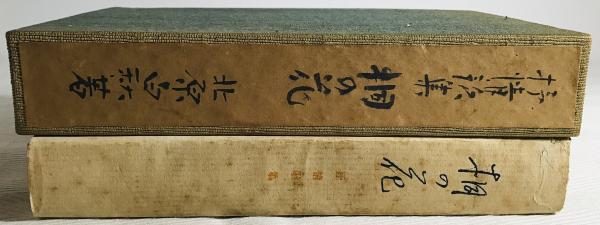 抒情歌集 桐の花 北原白秋著
桐の花